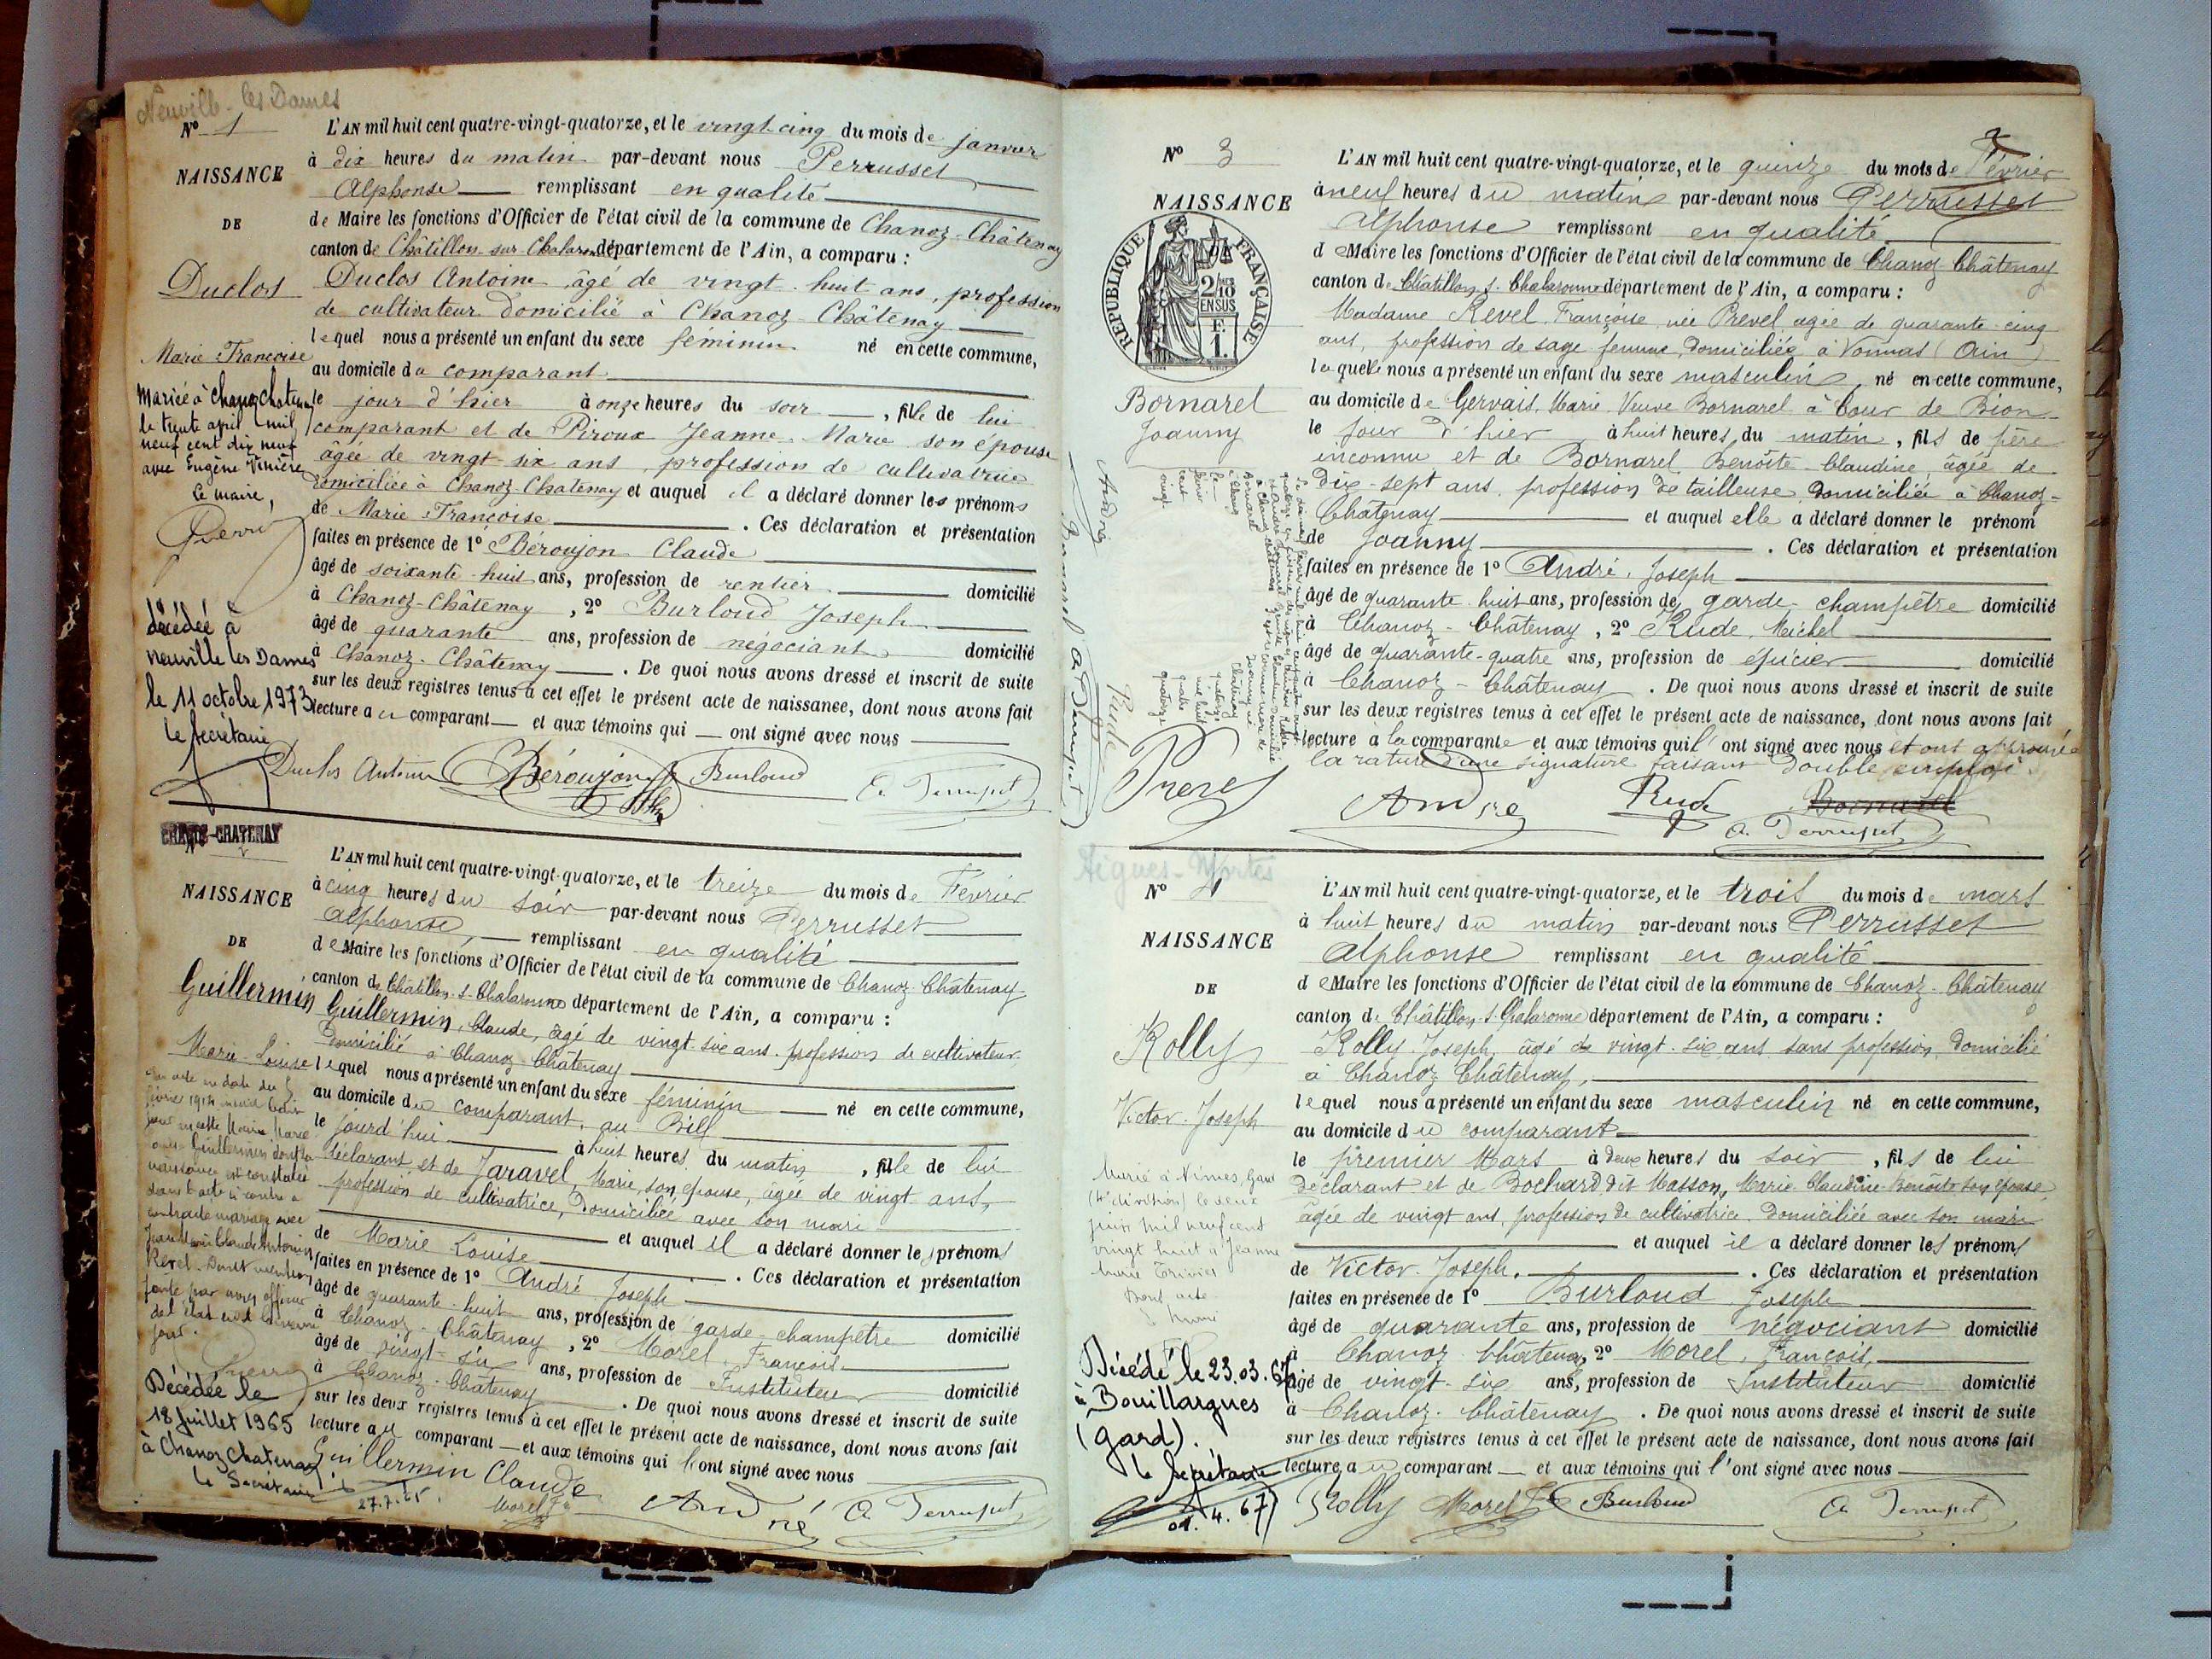 Neuville-les Dames
Nº 1
NAISSANCE
DE
Duclos
Marie Françoise
Mariée à Chanoz Chatenay
le trente april mil
neuf cent dix neuf
avec Eugène
Le maire,
décédée à
neuville les Dames
le 11 octobre 1973
le secrétaire
L'AN mil huit cent quatre-vingt-quatorze, et le vingt-cinq du mois de janvier
à dix heures du matin par-devant nous Perrusset
Alphonse remplissant en qualité
de Maire les fonctions d'Officier de l'état civil de la commune de Chanoz-Châtenay
canton de Châtillon-sur-Chalaronne département de l'Ain, a comparu :
Duclos Antoine, âgé de vingt-huit ans, profession
de cultivateur domicilié à Chanoz-Châtenay
lequel nous a présenté un enfant du sexe féminin né en cette commune,
au domicile du comparant
le jour d'hier à onze heures du soir, fille de lui
comparant et de Piroux Jeanne-Marie son épouse
âgée de vingt-six ans, profession de cultivatrice
domiciliée à Chanoz-Chatenay et auquel il a déclaré donner les prénoms
de Marie-Françoise. Ces déclaration et présentation
faites en présence de 1º Béroujon Claude
âgé de soixante-huit ans, profession de rentier domicilié
à Chanoz-Châtenay, 2º Burloud Joseph
âgé de quarante ans, profession de négociant domicilié
à Chanoz-Châtenay. De quoi nous avons dressé et inscrit de suite
sur les deux registres tenus à cet effet le présent acte de naissance, dont nous avons fait
lecture au comparant et aux témoins qui ont signé avec nous
Duclos Antoine Béroujon Burloud
CHANOZ-CHATENAY
2
NAISSANCE
DE
Guillermin
Marie-Louise
Décédée le
18 Juillet 1965
à Chanoz Chatenay
le Secrétaire
27.7.65.
L'AN mil huit cent quatre-vingt-quatorze, et le treize du mois de Février
à cinq heures du soir par-devant nous Perrusset
Alphonse, remplissant en qualité
de Maire les fonctions d'Officier de l'état civil de la commune de Chanoz-Châtenay
canton de Châtillon-s-Chalaronne département de l'Ain, a comparu :
Guillermin, Claude, âgé de vingt-six ans, profession de cultivateur,
domicilié à Chanoz-Châtenay
lequel nous a présenté un enfant du sexe féminin né en cette commune,
au domicile du comparant, au
le jourd'hui à huit heures du matin, fille de lui
déclarant et de Jaravel, Marie, son épouse, âgée de vingt ans,
profession de cultivatrice, domiciliée avec son mari
et auquel il a déclaré donner les prénoms
de Marie Louise. Ces déclaration et présentation
faites en présence de 1º André Joseph
âgé de quarante-huit ans, profession de garde-champêtre domicilié
à Chanoz-Châtenay, 2º Morel, François
âgé de vingt-six ans, profession de Instituteur domicilié
à Chanoz-Châtenay. De quoi nous avons dressé et inscrit de suite
sur les deux registres tenus à cet effet le présent acte de naissance, dont nous avons fait
lecture au comparant et aux témoins qui l'ont signé avec nous
Guillermin Claude
Morel André
2
Nº 3
NAISSANCE
REPUBLIQUE FRANÇAISE
2/10 EN SUS
F. 1.
Bornarel
Joanny
L'AN mil huit cent quatre-vingt-quatorze, et le quinze du mois de Février
à neuf heures du matin par-devant nous Perrusset
Alphonse remplissant en qualité
de Maire les fonctions d'Officier de l'état civil de la commune de Chanoz-Châtenay
canton de Châtillon-s-Chalaronne département de l'Ain, a comparu :
Madame Revel, Françoise, née Prevel, agée de quarante-cinq
ans, profession de sage femme, domiciliée à Vonnas (Ain)
laquelle nous a présenté un enfant du sexe masculin, né en cette commune,
au domicile de Gervais, Marie, Veuve Bornarel à Cour de Bion
le jour d'hier à huit heures du matin, fils de père
inconnu et de Bornarel, Benoîte-Claudine, âgée de
dix-sept ans, profession de tailleuse, domiciliée à Chanoz-
Châtenay et auquel elle a déclaré donner le prénom
de Joanny. Ces déclaration et présentation
faites en présence de 1º André, Joseph
âgé de quarante-huit ans, profession de garde-champêtre domicilié
à Chanoz-Châtenay, 2º Rude, Michel
âgé de quarante-quatre ans, profession de épicier domicilié
à Chanoz-Châtenay. De quoi nous avons dressé et inscrit de suite
sur les deux registres tenus à cet effet le présent acte de naissance, dont nous avons fait
lecture à la comparante et aux témoins qui l'ont signé avec nous et ont approuvé
la rature d'une signature faisant double emploi.
André Rude Bornarel
Aigues-Mortes
Nº 4
NAISSANCE
DE
Rolly
Victor-Joseph
Marié à Nîmes, Gard
Décédé le 23.03.67
à Bouillargues
(Gard).
le Secrétaire
01.4.67
L'AN mil huit cent quatre-vingt-quatorze, et le trois du mois de mars
à huit heures du matin par-devant nous Perrusset
Alphonse remplissant en qualité
de Maire les fonctions d'Officier de l'état civil de la commune de Chanoz-Châtenay
canton de Châtillon-s-Chalaronne département de l'Ain, a comparu :
Rolly Joseph, âgé de vingt-six ans, sans profession, domicilié
à Chanoz Châtenay,
lequel nous a présenté un enfant du sexe masculin né en cette commune,
au domicile du comparant
le premier Mars à deux heures du soir, fils de lui
déclarant et de Bochard dit Masson, Marie-Claudine-Benoîte son épouse,
âgée de vingt ans, profession de cultivatrice, domiciliée avec son mari
et auquel il a déclaré donner les prénoms
de Victor-Joseph. Ces déclaration et présentation
faites en présence de 1º Burloud Joseph
âgé de quarante ans, profession de négociant domicilié
à Chanoz Châtenay, 2º Morel, François,
âgé de vingt-six ans, profession de Instituteur domicilié
à Chanoz-Châtenay. De quoi nous avons dressé et inscrit de suite
sur les deux registres tenus à cet effet le présent acte de naissance, dont nous avons fait
lecture au comparant et aux témoins qui l'ont signé avec nous
Rolly Morel Burloud